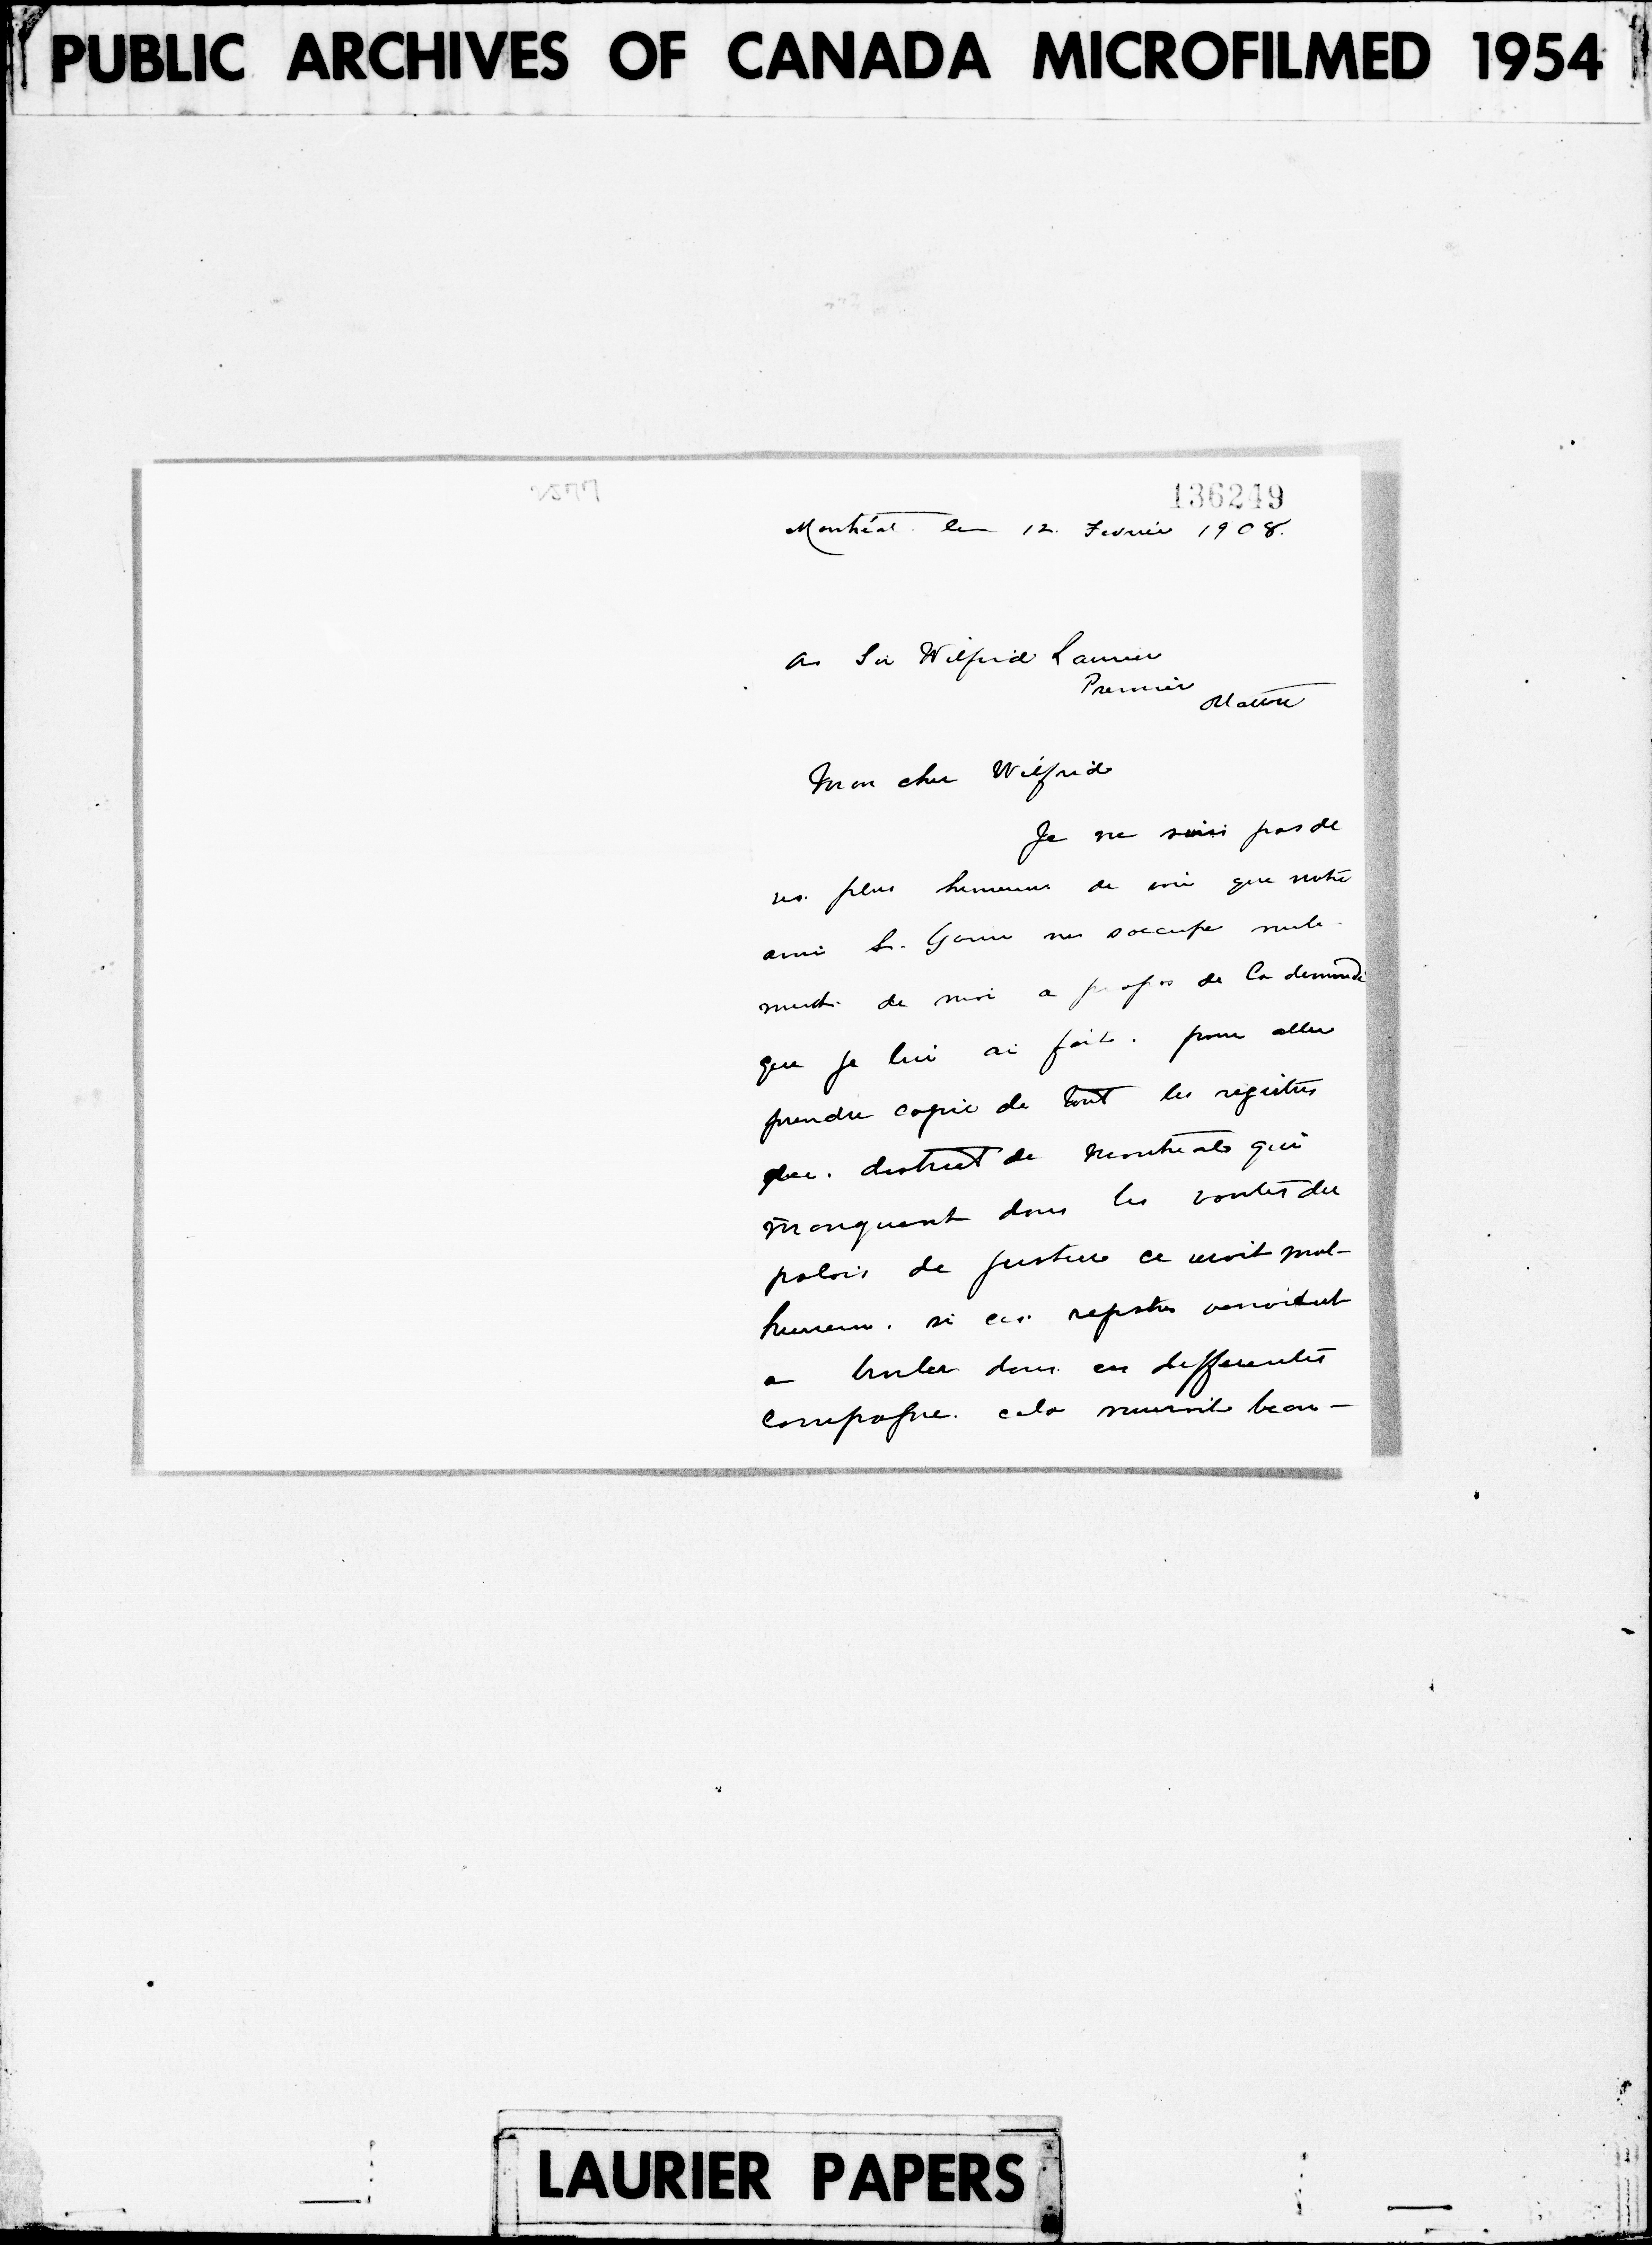 PUBLIC ARCHIVES OF CANADA MICROFILMED 1954
136249
Montréal le 12 Fevrier 1908.
A Sir Wilfrid Laurier
Premier
Ottawa
Mon cher Wilfrid
Je ne suis pas de
plus heureux de voir que notre
ami L. Gouin ne s'occupe nule-
ment de moi a propos de la demande
que je lui ai fait. pour aller
prendre copie de tout les registres
du district de Montreal qui
manquent dans les voutes du
palais de justice ce serait mal-
heureux. si ces registres venoident
a bruler dans ces differentes
compagne. cela nuirait beau-
LAURIER PAPERS